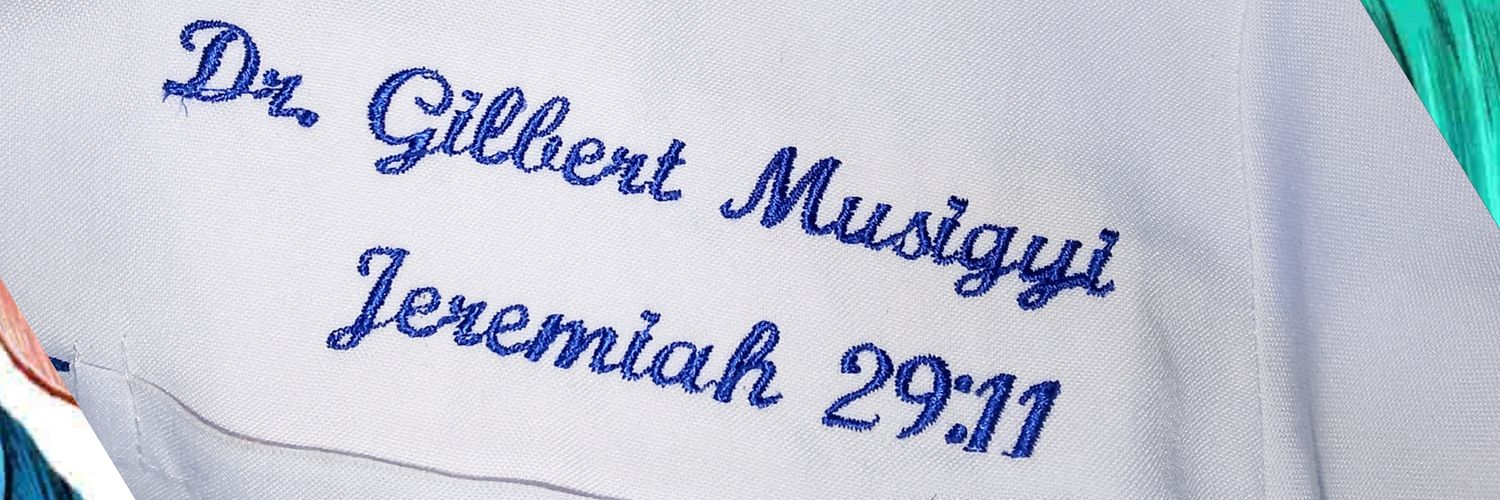 Dr. Gilbert Musigyi
Jeremiah 29:11